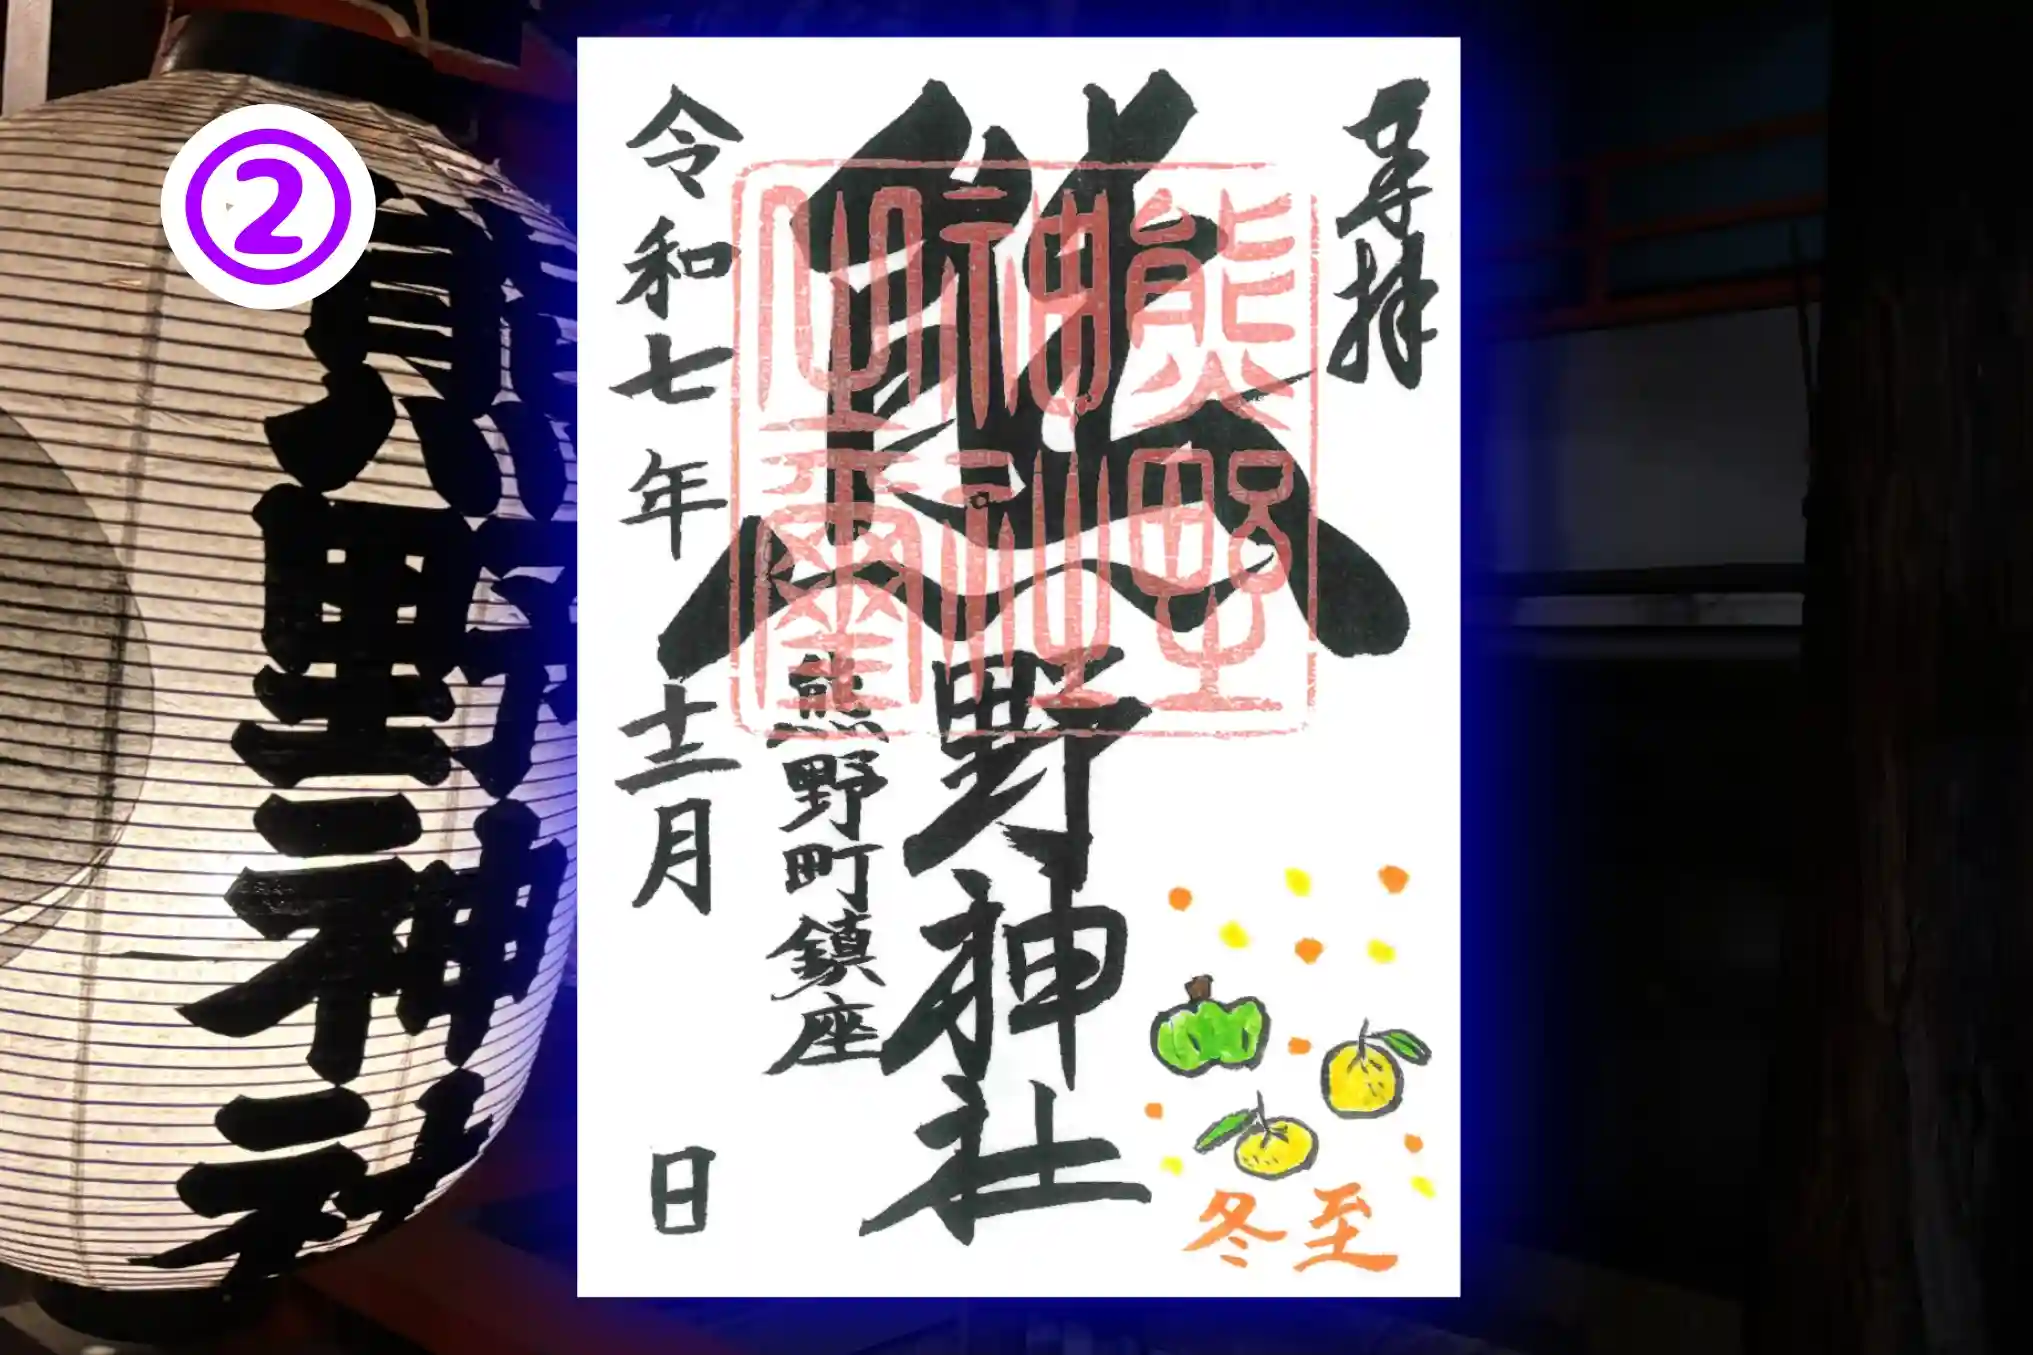 ②
熊野神社
奉拝
熊野神社
熊野町鎮座
令和七年十二月 日
熊野
神社
冬至